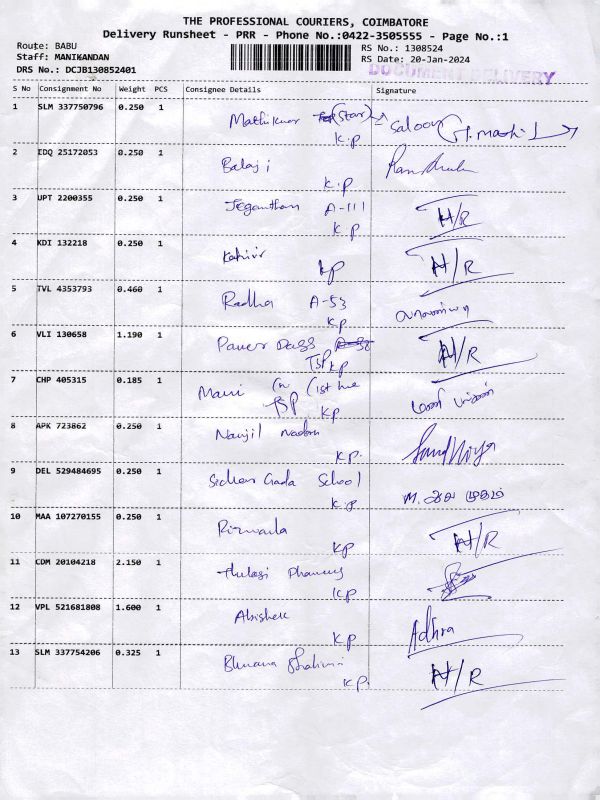 THE PROFESSIONAL COURIERS, COIMBATORE
Delivery Runsheet - PRR - Phone No.:0422-3505555 - Page No.:1
Route: BABU RS No.: 1308524
Staff: MANIKANDAN RS Date: 20-Jan-2024
DRS No.: DCJB130852401 DOCUMENT DELIVERY
S No Consignment No Weight PCS Consignee Details Signature
1 SLM 337750796 0.250 1 (Star) Saloon
K.P
2 EDQ 25172053 0.250 1 Balaji
K.P
3 UPT 2200355 0.250 1 Jeganthan A-111 H/R
K P
4 KDI 132218 0.250 1 Kathir H/R
KP
5 TVL 4353793 0.460 1 Radha A-53
KP
6 VLI 130658 1.190 1 H/R
TSP KP
7 CHP 405315 0.185 1 Mani (1st
TSP KP
8 APK 723862 0.250 1 Nanjil Sandhiya
KP.
9 DEL 529484695 0.250 1 School M.
K.P
10 MAA 107270155 0.250 1 Rizwana H/R
KP
11 CDM 20104218 2.150 1 Thulasi
KP
12 VPL 521681808 1.600 1 Abishek Adhira
KP
13 SLM 337754206 0.325 1 H/R
KP.